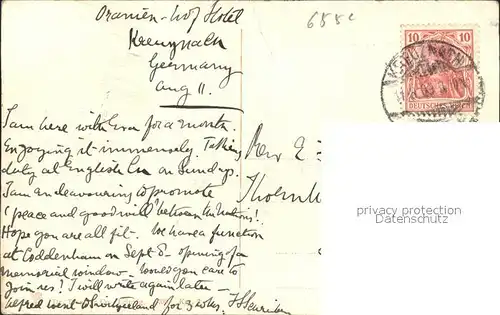 Oranien-hof Hotel
Kreuznach
Germany
Aug 11.
688c
I am here with for a month.
Enjoying it immensely. Taking
duty at English on Sundays.
I am endeavouring to promote
"peace and goodwill" between the nations!
Hope you are all fit. We have a function
at Coddenham on Sept 8. opening of a
memorial window – would you care to
join us? I will write again later –
Alfred went Switzerland for 3 wks.
Rev E
Thornh
10 10
DEUTSCHES
KREUZNACH
privacy protection
Datenschutz